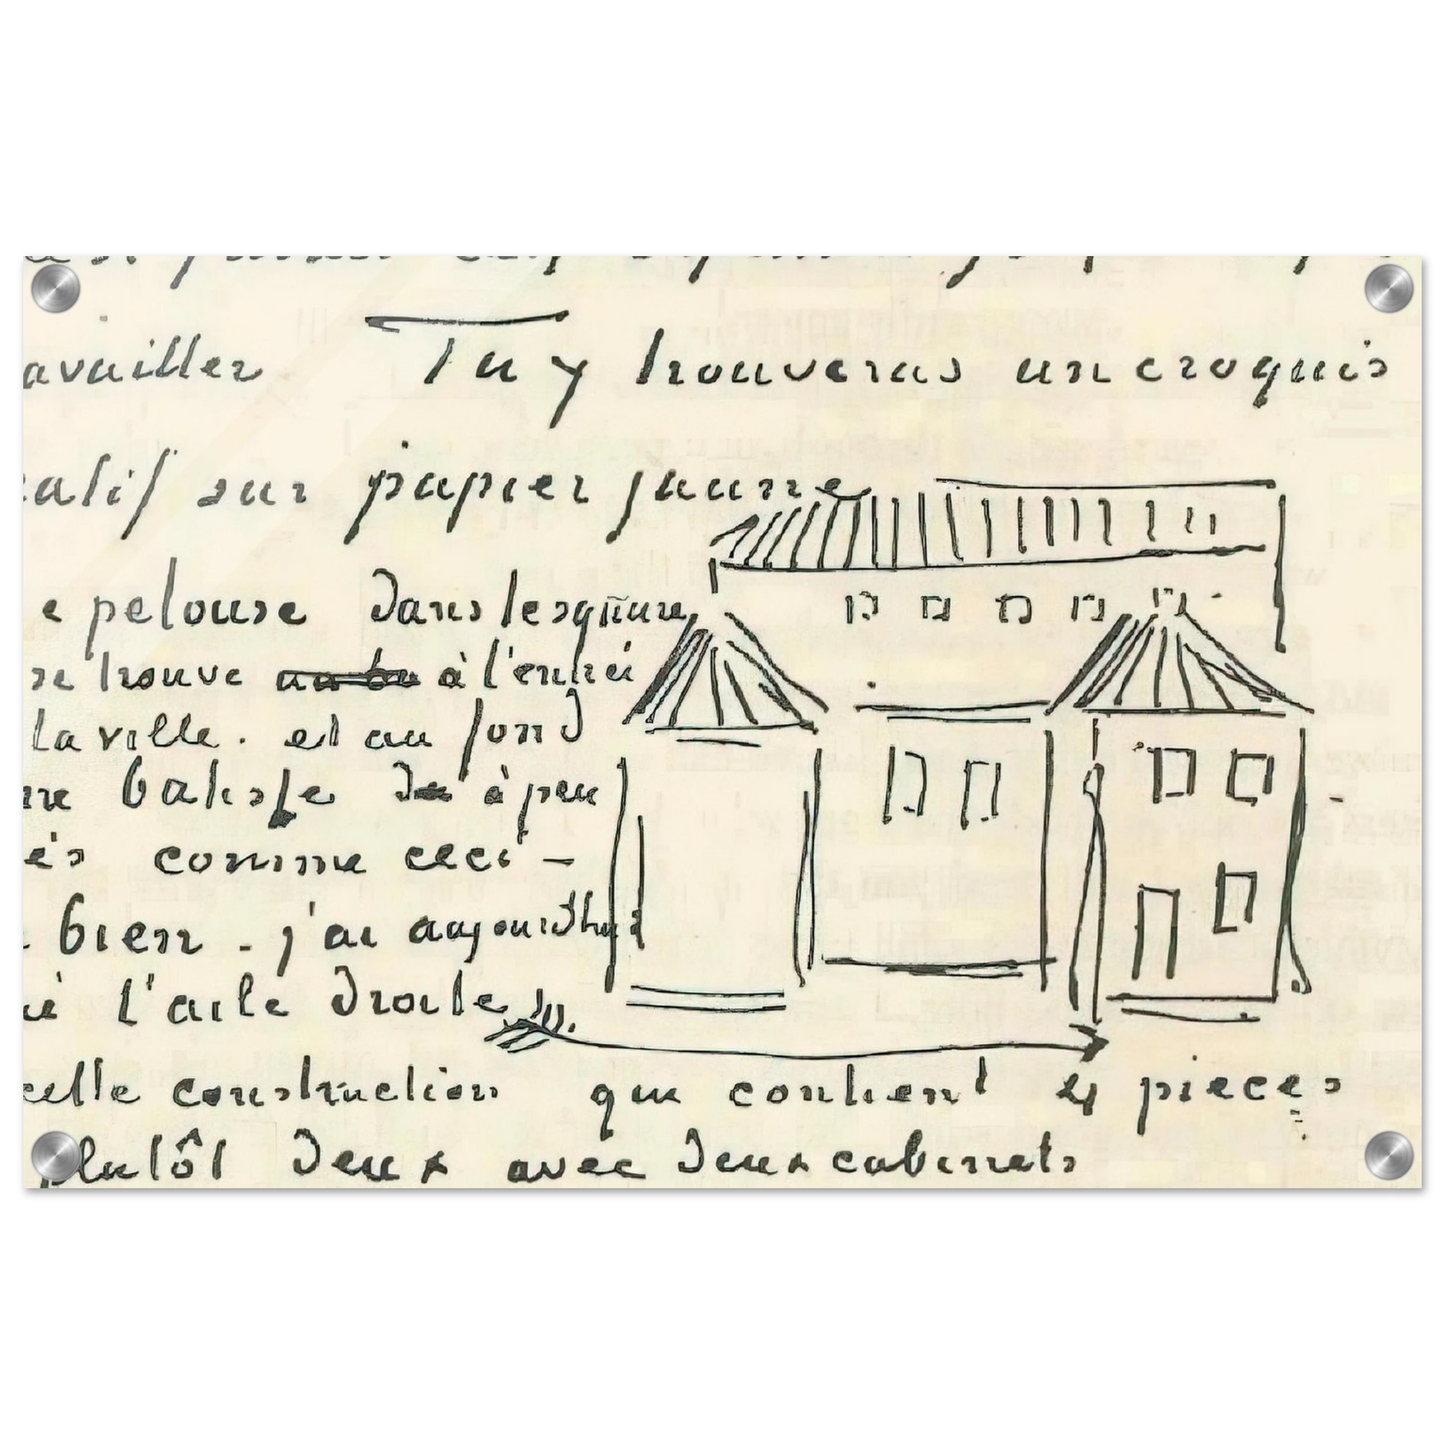 availler Tu y trouveras un croquis
catif sur papier jaune
e pelouse dans le square
se trouve à l'entrée
la ville. et au fond
ne batisse à peu
ès comme ceci –
bien - j'ai aujourdhui
é l'aile droite
cette construction qui contient 4 pieces
plutôt deux avec deux cabinets